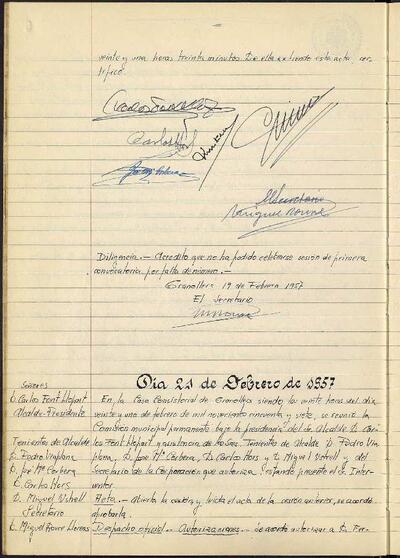 veinte y una horas treinta minutos. De ella extiendo esta acta, cer-
tifico.
Carlos
El Secretario
Diligencia.- Acredito que no ha podido celebrarse sesión de primera
convocatoria por falta de número.-
Granollers 19 de Febrero 1957
El Secretario
Día 21 de Febrero de 1957
Señores
D. Carlos Font Llopart
Alcalde-Presidente
Tenientes de Alcalde
D. Pedro Viaplana
D. José Mª Corbera
D. Carlos Hors
D. Miguel Vetrell
Secretario
D. Miguel Llorens
En la Casa Consistorial de Granollers siendo las veinte horas del día
veinte y uno de febrero de mil novecientos cincuenta y siete, se reunió la
Comisión municipal permanente bajo la presidencia del Sr. Alcalde D. Car-
los Font Llopart y asistencia de los Sres. Tenientes de Alcalde D. Pedro Via-
plana, D. José Mª Corbera, D. Carlos Hors y D. Miguel Vetrell y del
Secretario de la Corporación que autoriza, estando presente el Sr. Inter-
ventor.
Acta.- Abierta la sesión y leída el acta de la sesión anterior, se acordó
aprobarla.
Despacho oficial.- Autorizaciones.- Se acordó autorizar a D. Fran-